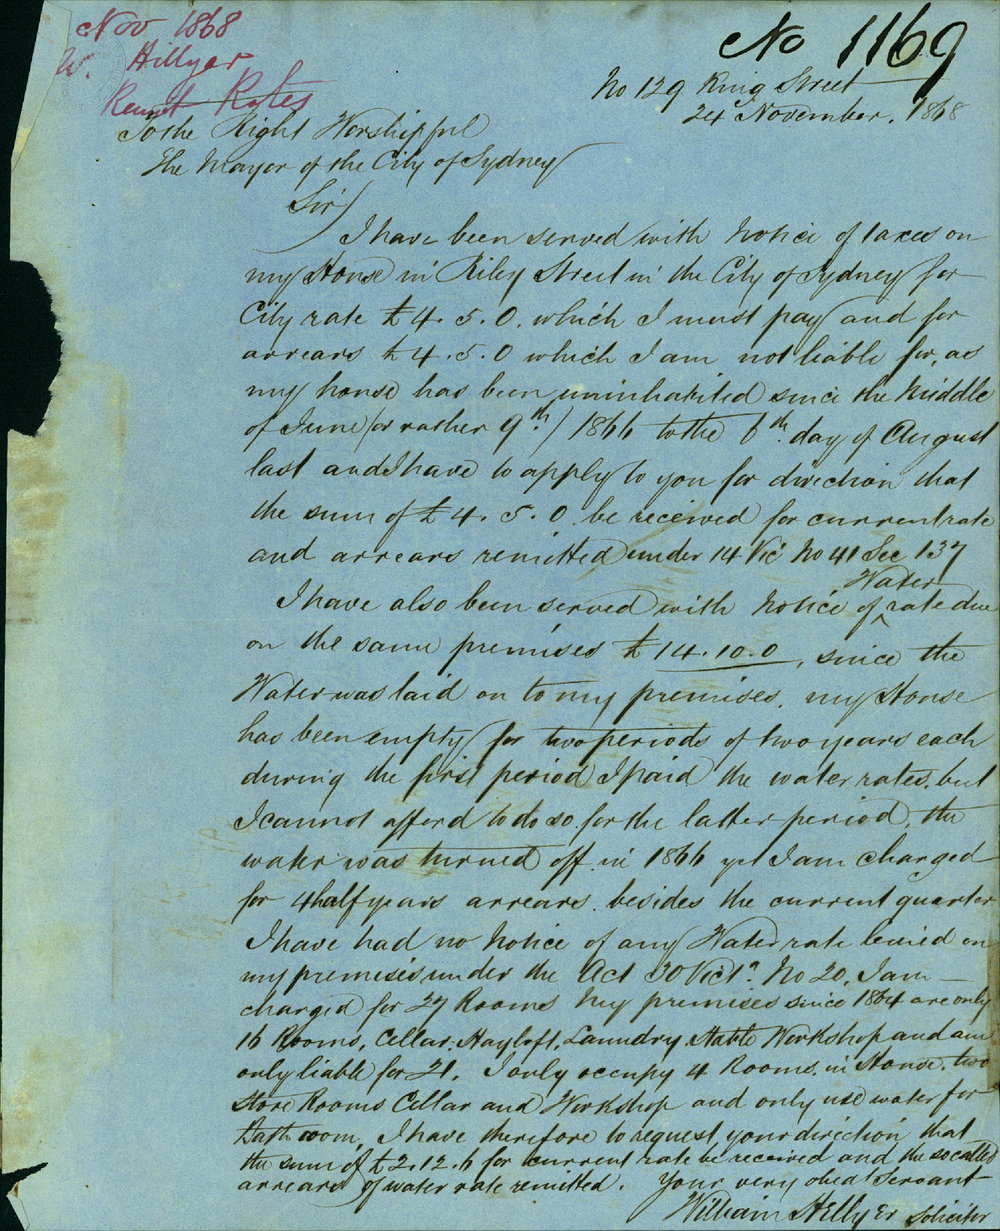 Nov 1868
W. Hillyer
Remit Rates
No 1169
No 129 King Street
24 November. 1868
To the Right Worshipful
The Mayor of the City of Sydney
Sir
I have been served with Notice of taxes on
my House in Riley Street in the City of Sydney for
City rate £4.5.0. which I must pay and for
arrears £4.5.0 which I am not liable for, as
my house has been uninhabited since the Middle
of June (or rather 9th) 1866 to the 6th day of August
last and I have to apply to you for direction that
the sum of £4.5.0 be received for current rate
and arrears remitted under 14 Vic No 41 Sec 137
I have also been served with Notice of Water rate due
on the same premises £14.10.0, since the
Water was laid on to my premises, my House
has been empty for two periods of two years each
during the first period I paid the water rates, but
I cannot afford to do so for the latter period, the
water was turned off in 1866 yet I am charged
for 4 half years arrears besides the current quarter
I have had no Notice of any Water rate levied on
my premises under the Act 30 Victa. No 20, I am
charged for 27 Rooms My premises since 1864 are only
16 Rooms, Cellar, Hayloft, Laundry Stable Workshop and am
only liable for 21. I only occupy 4 Rooms in House, two
Store Rooms Cellar and Workshop and only use water for
Bath room, I have therefore to request your direction that
the sum of £2.12.6 for current rate be received and the so called
arrears of water rate remitted. Your very obed Servant
William Hillyer Solicitor